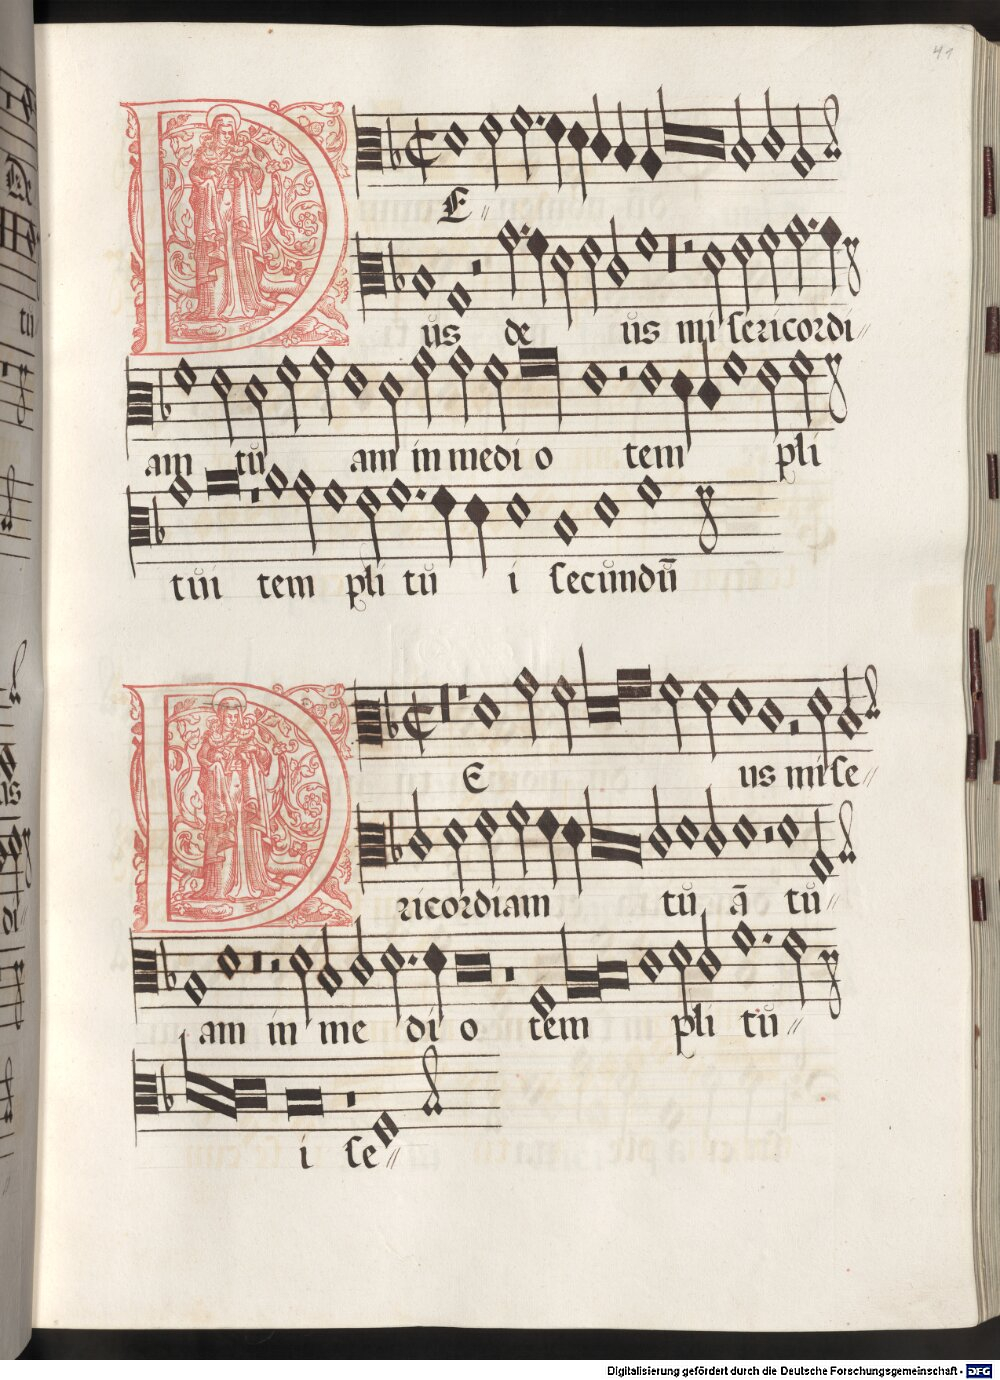 41
DE〃
ŭs de ŭs mi sericordi〃
am tŭ am in medi o tem pli
tŭi tem pli tŭ i secŭndū
DE us mise〃
ricordiam tŭ ā tŭ〃
am in me di o tem pli tŭ〃
i se〃
Digitalisierung gefördert durch die Deutsche Forschungsgemeinschaft - DFG